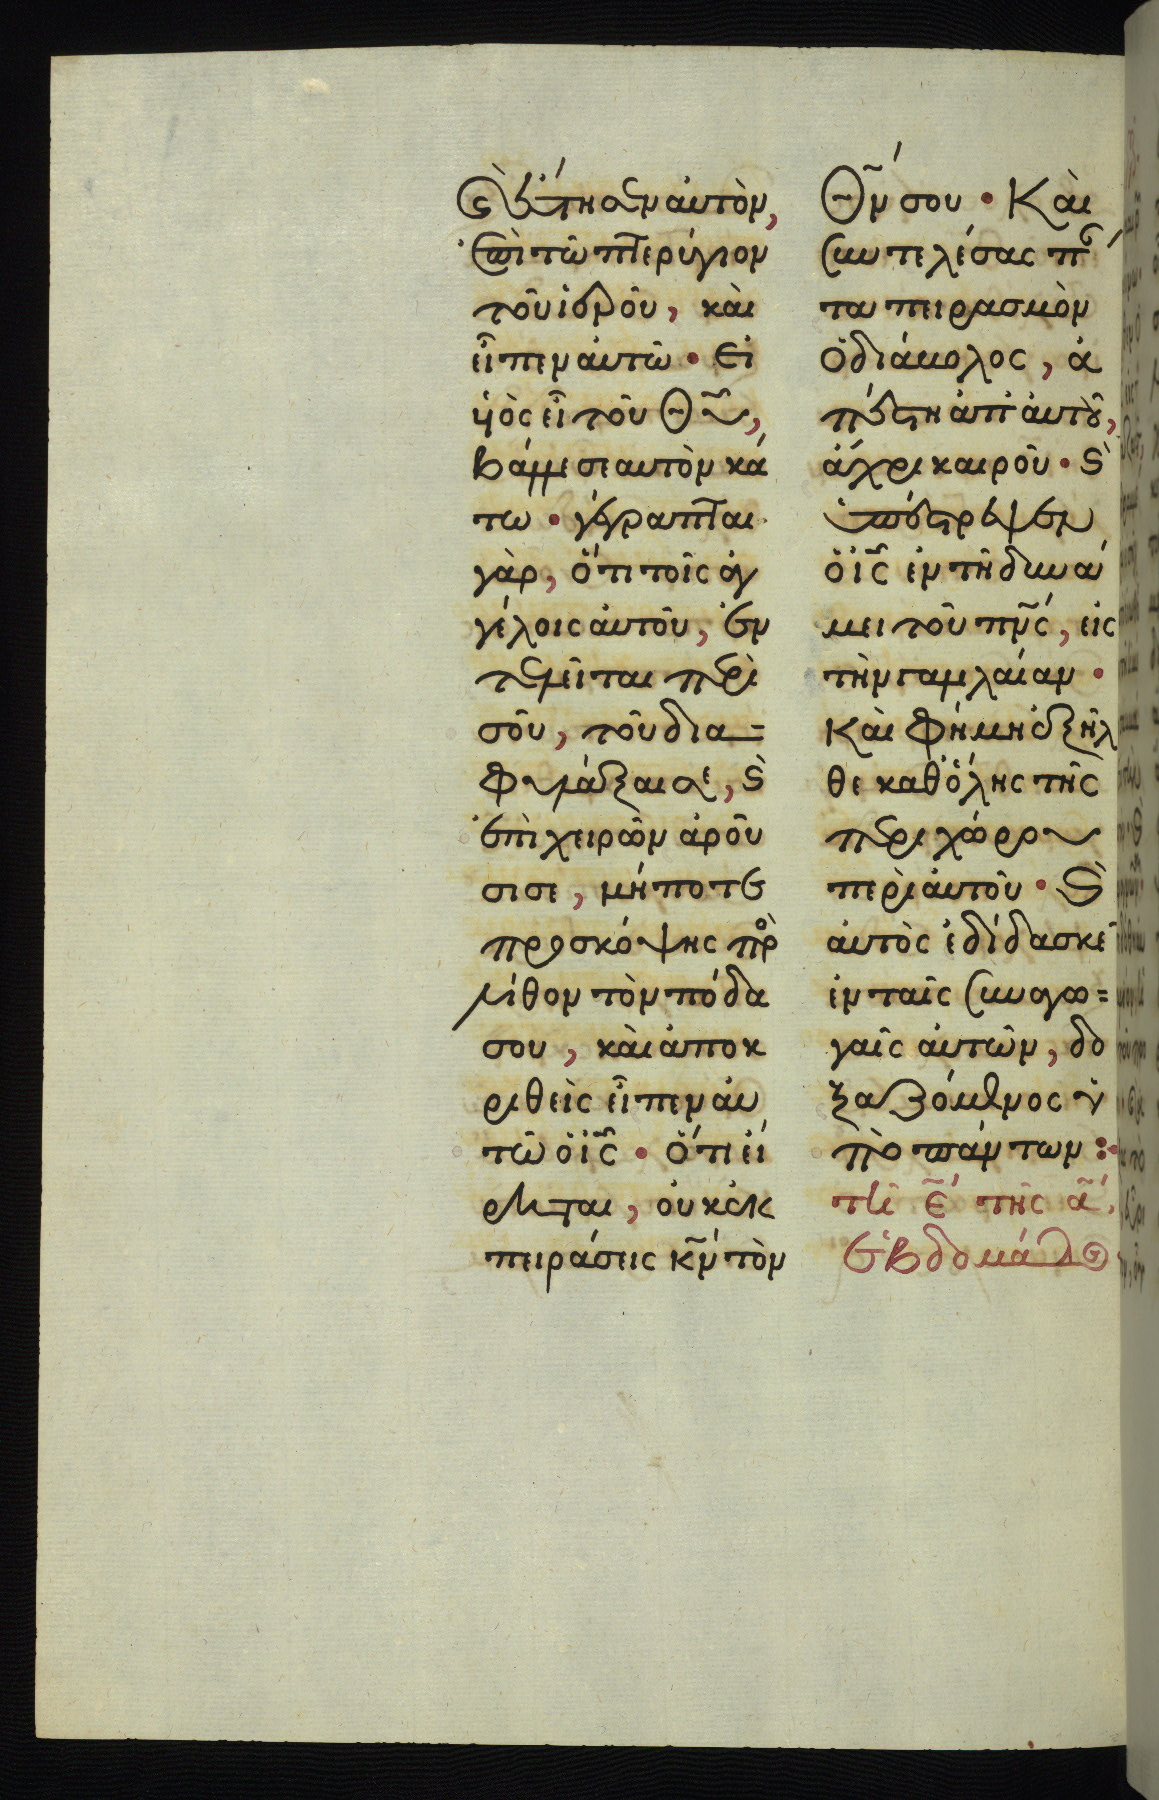 ἔστησεν ἀυτὸν,
ἐπὶ τῶ πτερύγιον
τοῦ ἱεροῦ, καὶ
εἶπεν ἀυτῶ · Εἰ
ὑιὸς εἶ τοῦ Θῦ,
βάλλε σεαυτὸν κά
τω · γέγραπται
γὰρ, ὅτι τοῖς ἀγ
γέλοις ἀυτοῦ, ἐν
τελεῖται περὶ
σοῦ, τοῦ δια=
φυλάξαι σε, ϛ̀
ἐπὶ χειρῶν ἀροῦ
σι σε, μήποτε
προσκόψης πρὸ
λίθον τὸν πόδα
σου, καὶ ἀποκ
ριθεὶς εἶπεν ἀυ
τῶ ὁ ἰς̃ · ὅτι εἴ
ρηται, οὐκ ἐκ
πειράσεις κν̃ τὸν
Θν̃ σου · Καὶ
συντελέσας πά
τα πειρασμὸν
ὁ διάβολος, ἀ
πέστη ἀπ' ἀυτοῦ,
ἄχρι καιροῦ · ϛ̀
ὑπέστρεψεν
ὁ ἰς̃ ἐν τῆ δυνά
μει τοῦ πνς̃, εἰς
τὴν γαλιλαίαν ·
Καὶ φήμη ἐξῆλ
θε καθ' ὅλης τῆς
περιχώρου
περὶ ἀυτοῦ · ϛ̀
ἀυτὸς ἐδίδασκε
ἐν ταῖς συναγω=
γαῖς ἀυτῶν, δο
ξαζόμενος ὑ
πὸ πάντων :·
τῆ ε̃ τῆς α̃
ἑβδομάδος